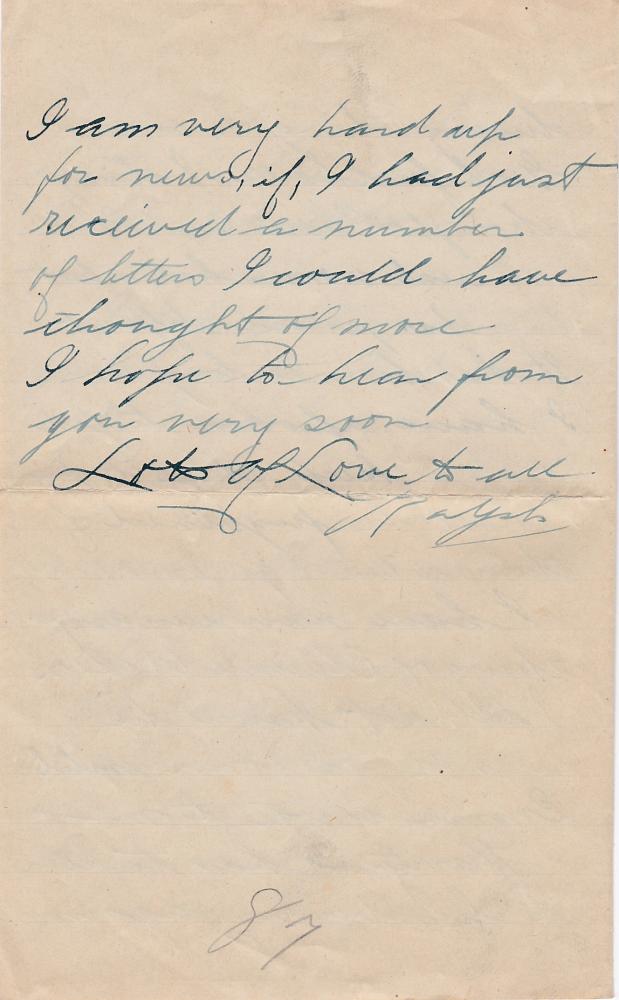 I am very hard up
for news, if, I had just
received a number
of letters I would have
thought of more
I hope to hear from
you very soon
Lots of Love to all
Ralph
87